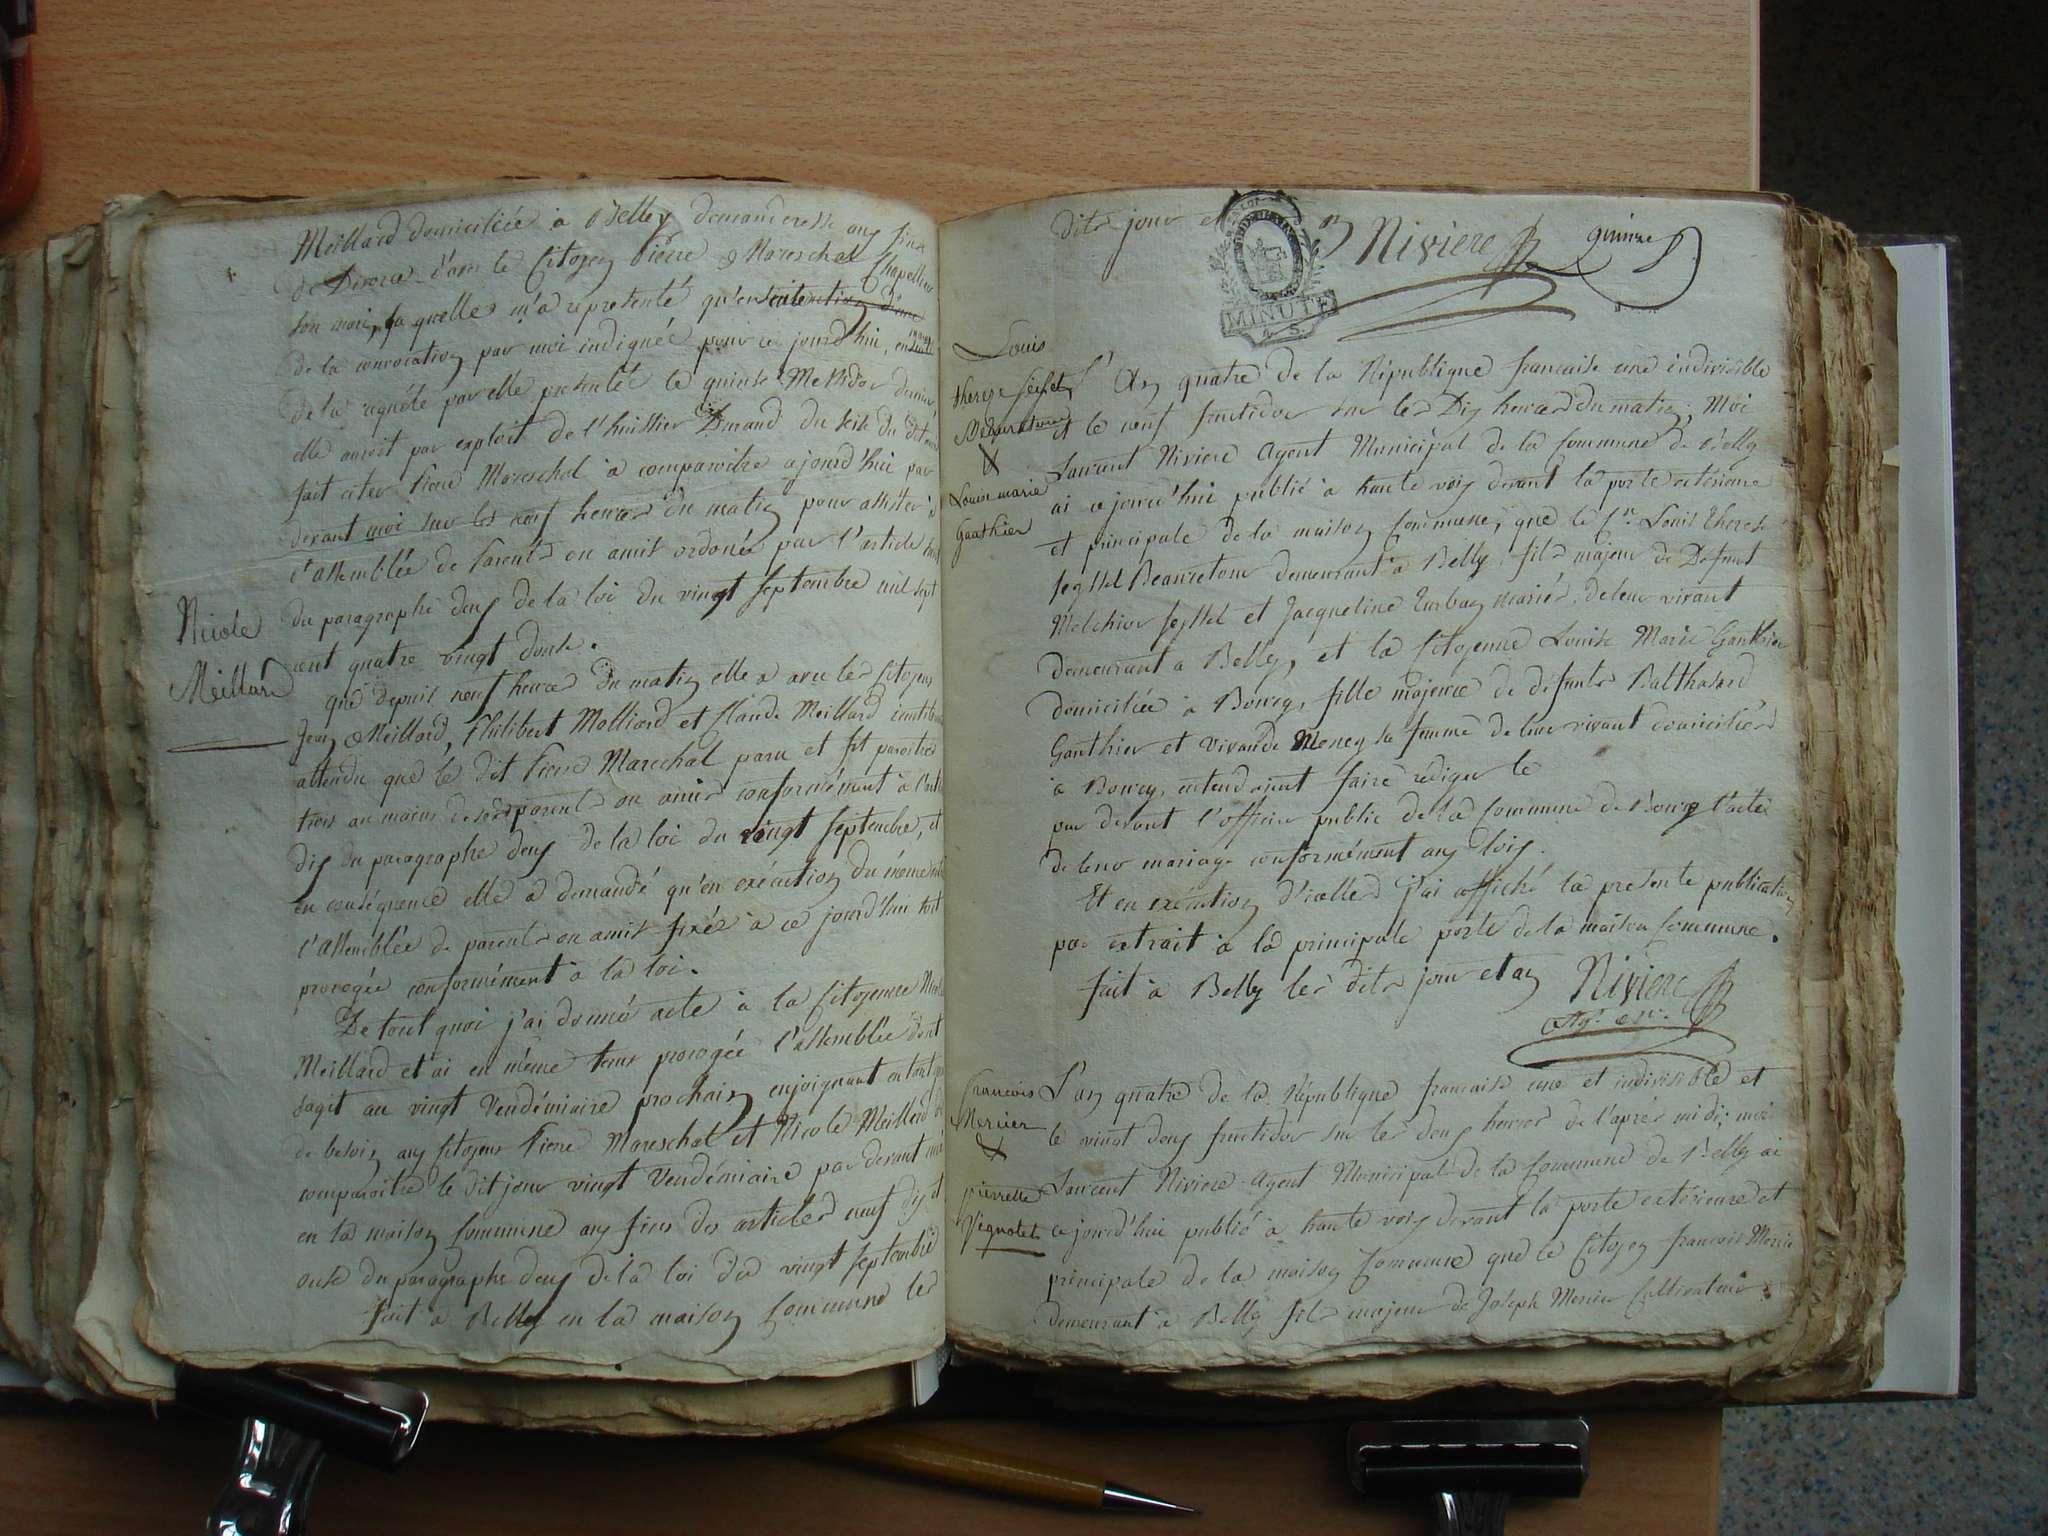 Meillard domiciliée à Belley demanderesse aux fins
de Divorce d'avec le Citoyen Pierre Mareschal Chapellier
son mari, laquelle m'a representé qu'en
de la convocation par moi indiquée pour ce jourd'hui, ensuite
de la requête par elle presentée le quinse Messidor dernier
elle auroit par exploit de l'huissier Durand du seise du dit
fait citer Pierre Mareschal à comparoitre cejourd'hui par
devant moi sur les neuf heures du matin pour assister à
l'assemblée de Parents ou amis ordonée par l'article
du paragraphe deux de la loi du vingt Septembre mil sept
cent quatre vingt douse.
Nicole
Meillard
que depuis neuf heures du matin elle a avec les Citoyens
Jean Meillard, Philibert Molliard et Claude Meillard
attendu que le dit Pierre Mareschal paru et fit paroitre
trois au moins de ses parents ou amis conformément à l'article
dix du paragraphe deux de la loi du vingt Septembre, et
en conséquence elle a demandé qu'en exécution du même
l'assemblée de parents ou amis fixée à ce jourd'hui soit
prorogée conformément à la loi.
De tout quoi j'ai donné acte à la Citoyenne Nicole
Meillard et ai en même tems prorogée l'assemblée dont
sagit au vingt Vendémiaire prochain enjoignant en tout que
de besoin aux Citoyens Pierre Mareschal et Nicole Meillard de
comparoitre le dit jour vingt Vendémiaire par devant moi
en la maison Commune aux fins des articles neuf dix et
onse du paragraphe deux de la loi du vingt Septembre
fait à Belley en la maison Commune les
dits jour et an Niviere quinze
MINUTE
Louis
therese seissel
Beauretour
&
Louise marie
Gauthier
L'An quatre de la République francaise une indivisible
et le neuf fructidor sur les Dix heures du matin, Moi
Laurent Niviere Agent Municipal de la Commune de Belley
ai ce jourd'hui publié à haute voix devant la porte extérieure
et principale de la maison Commune, que le Cn. Louis Therese
Seyssel Beauretour demeurant à Belley, fils majeur de Defunt
Melchior Seyssel et Jacqueline mariés, de leur vivant
demeurant a Belley, et la Citoyenne Louise Marie Gauthier
domiciliée à Bourg, fille majeure de défunts Balthasard
Gauthier et sa femme de leur vivant domiciliés
à Bourg, entendoient faire rédiger le
par devant l'officier public de la Commune de Bourg l'acte
de leur mariage conformément aux lois.
Et en exécution d'icelles j'ai affiché la presente publication
par extrait à la principale porte de la maison Commune.
fait à Belley les dits jour et an Niviere
Agt. Mr.
francois
Mercier
&
pierrette
Vignolet
L'an quatre de la République francaise une et indivisible et
le vingt deux fructidor sur les deux heures de l'après midi; moi
Laurent Niviere Agent Municipal de la Commune de Belley ai
ce jourd'hui publié à haute voix devant la porte extérieure et
principale de la maison Commune que le Citoyen francois Mercier
demeurant à Belley fils majeur de Joseph Mercier Cultivateur